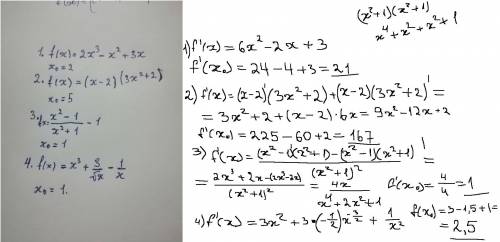 1. f(x) = 2x³ - x² + 3x
x₀ = 2
2. f(x) = (x-2)(3x²+2)
x₀ = 5
3. f(x) = (x²-1)/(x³+1) - 1
x₀ = 1
4. f(x) = x³ + 3/√x - 1/x
x₀ = 1.
(x²+1)(x²+1)
x⁴ + x² + x² + 1
1) f'(x) = 6x² - 2x + 3
f'(x₀) = 24 - 4 + 3 = 21
2) f'(x) = (x-2)'(3x²+2) + (x-2)(3x²+2)' =
= 3x² + 2 + (x-2)·6x = 9x² - 12x + 2
f'(x₀) = 225 - 60 + 2 = 167
3) f'(x) = ((x²-1)'(x²+1) - (x²-1)(x²+1)')/(x²+1)² =
= (2x³ + 2x - (2x³-2x))/(x²+1)² = 4x/(x⁴+2x²+1) f'(x₀) = 4/4 = 1
4) f'(x) = 3x² + 3·(-1/2)x^(-3/2) + 1/x² f'(x₀) = 3 - 1,5 + 1 =
= 2,5